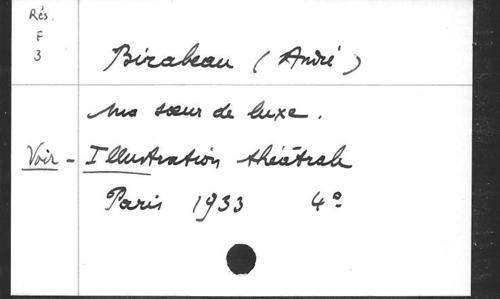 Rés.
F
3
Birabeau (André)
Ma sœur de luxe.
Voir - Illustration théâtrale
Paris 1933 4°